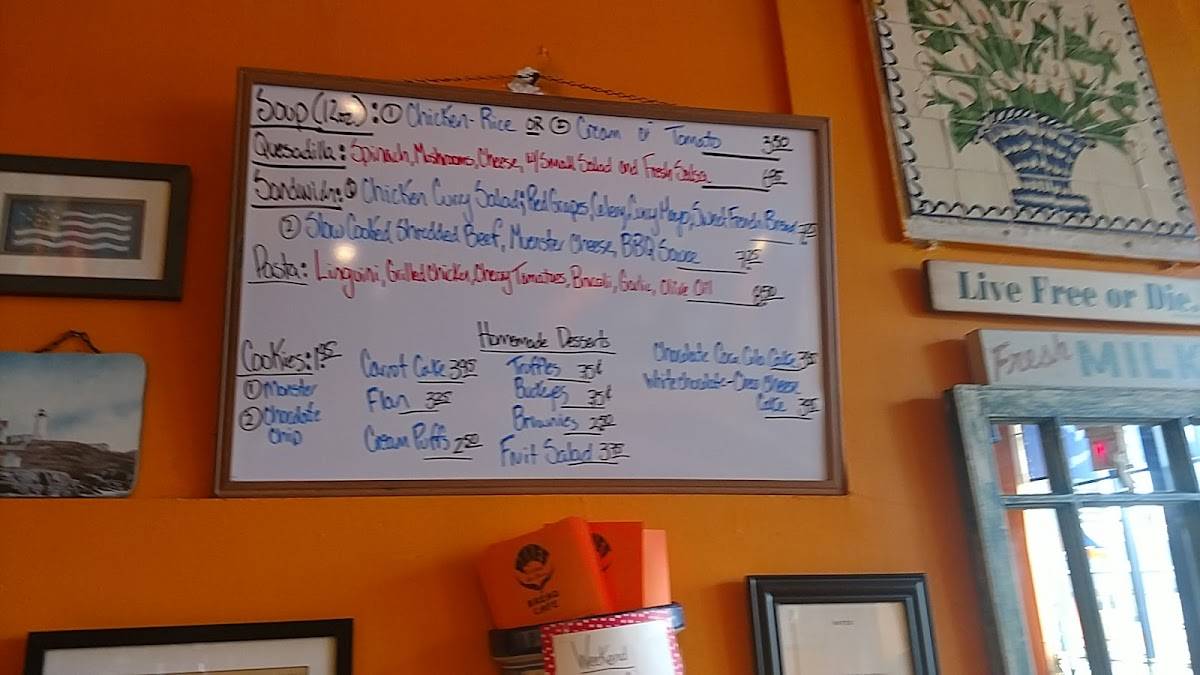 Soup (12oz): ① Chicken-Rice OR ② Cream of Tomato 3.50
Quesadilla: Spinach, Mushrooms, Cheese, w/ Small Salad and Fresh Salsa 6.95
Sandwich: ① Chicken Curry Salad; Red Grapes, Celery, Curry Mayo, Sweet French Bread
② Slow Cooked Shredded Beef, Muenster Cheese, BBQ Sauce 7.25
Pasta: Linguini, Grilled Chicken, Cherry Tomatoes, Brocoli, Garlic, Olive Oil 8.50
Homemade Desserts
Cookies: 1.95
① Monster
② Chocolate
Chip
Carrot Cake 3.95
Flan 3.25
Cream Puffs 2.50
Truffles 35¢
Buckeyes 35¢
Brownies 2.50
Fruit Salad 3.75
Chocolate Coca Cola Cake 3.95
White Chocolate-Oreo Cheese
Cake 3.95
Live Free or Die.
Fresh MILK
CAFE
Weekend